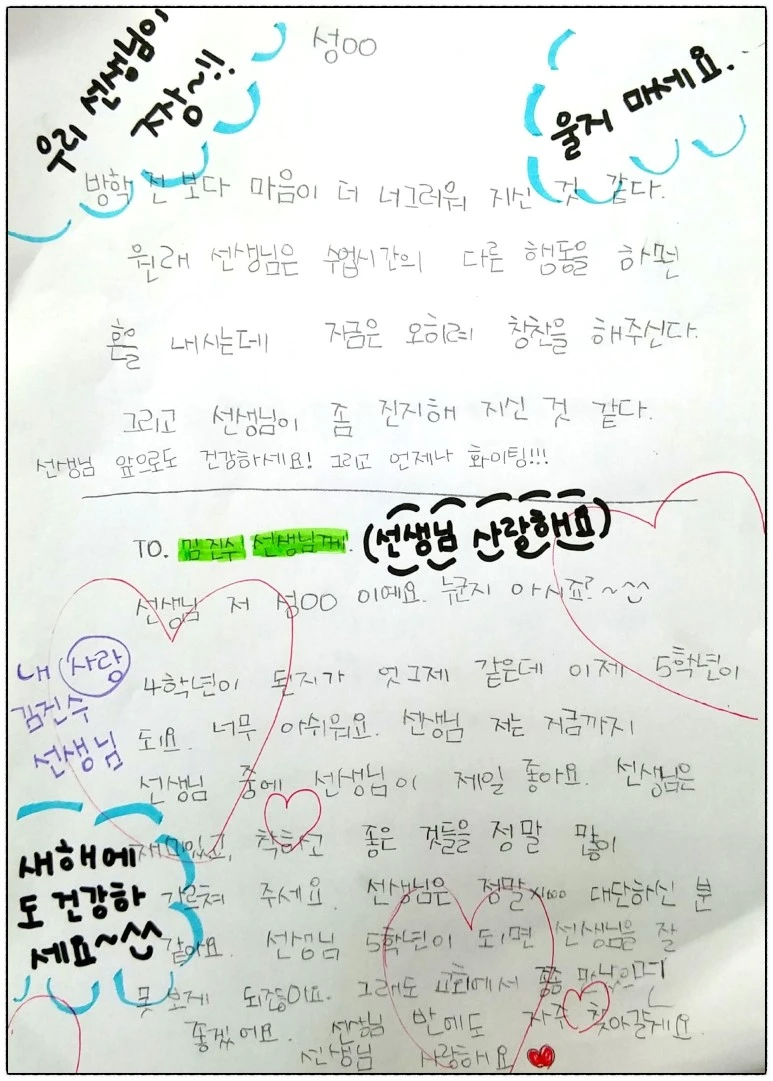 우리 선생님이
짱~!!
성00
울지 마세요.
방학 전 보다 마음이 더 너그러워 지신 것 같다.
원래 선생님은 수업시간의 다른 행동을 하면
혼을 내시는데 지금은 오히려 칭찬을 해주신다.
그리고 선생님이 좀 진지해 지신 것 같다.
선생님 앞으로도 건강하세요! 그리고 언제나 화이팅!!!
TO. 김진수 선생님께. (선생님 사랑해요)
선생님 저 성00 이예요. 누군지 아시죠?~^^
내 사랑
김진수
선생님
4학년이 된지가 엇그제 같은데 이제 5학년이
되요. 너무 아쉬워요. 선생님 저는 지금까지
선생님 중에 선생님이 제일 좋아요. 선생님은
재미있고, 착하고 좋은 것들을 정말 많이
가르쳐 주세요. 선생님은 정말x100 대단하신 분
같아요. 선생님 5학년이 되면 선생님을 잘
못 보게 되잖아요. 그래도 교회에서 쫌
좋겠어요. 선생님 반에도 자주 찾아갈게요.
선생님 사랑해요
새해에
도 건강하
세요~^^